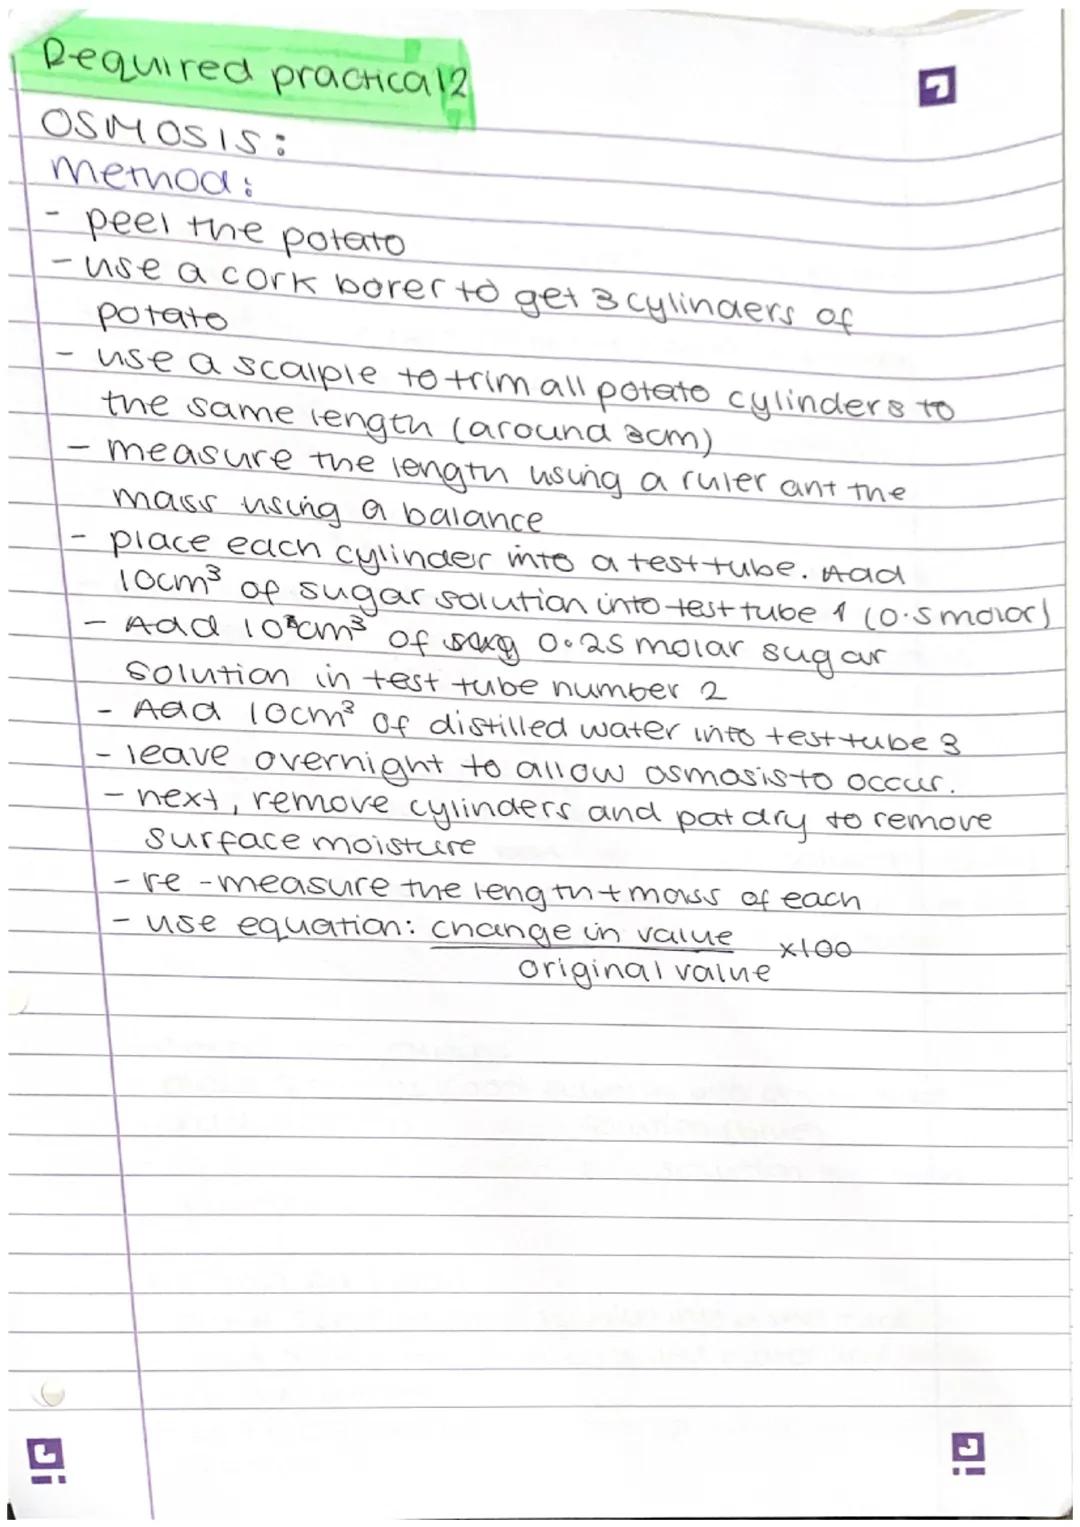 Required practical 2
OSMOSIS:
method:
- peel the potato
- use a cork borer to get 3 cylinders of
potato
- use a scalple to trim all potato cylinders to
the same length (around 3cm)
- measure the length using a ruler ant the
mass using a balance
- place each cylinder into a test tube. Add
10cm³ of sugar solution into test tube 1 (0.5 molar)
- Add 10cm³ of 0.25 molar sugar
solution in test tube number 2
- Add 10cm³ of distilled water into test tube 3
- leave overnight to allow osmosis to occur.
- next, remove cylinders and pat dry to remove
surface moisture
- re-measure the length + mass of each
- use equation: change in value x100
original value